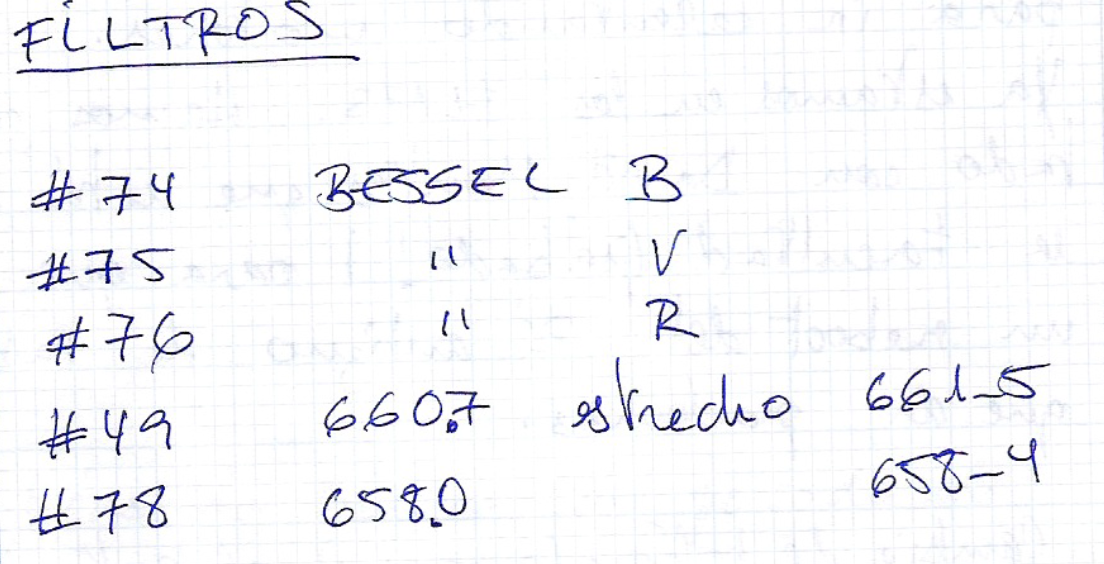 FILTROS
#74 BESSEL B
#75 " V
#76 " R
#49 660.7 estrecho 661_5
#78 658.0 658_4